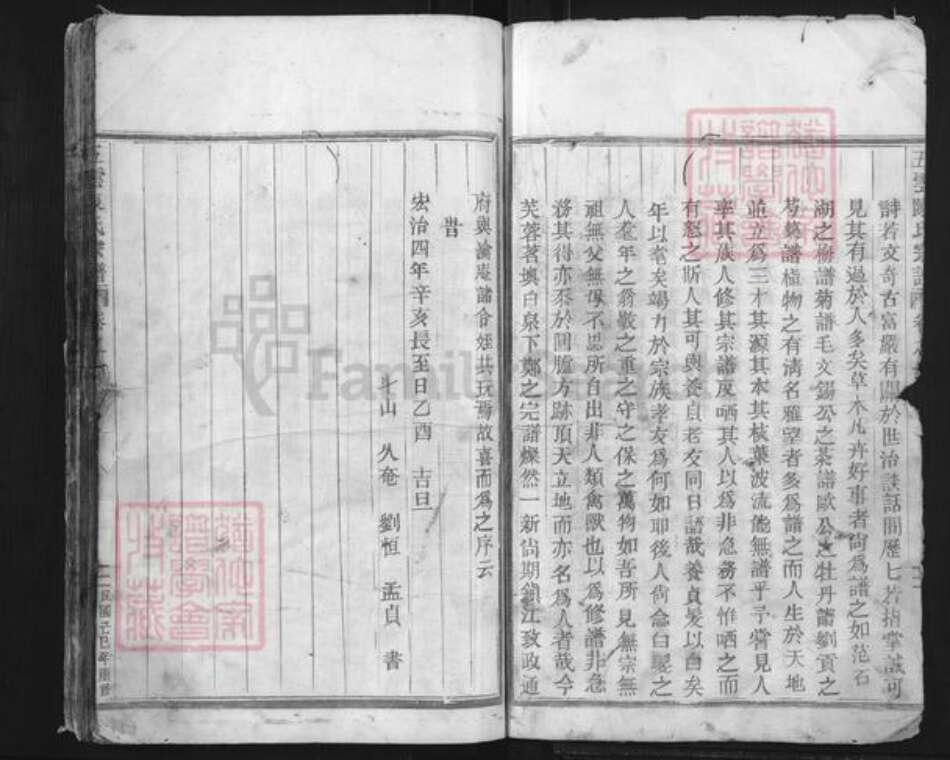 五雲陳氏宗譜
詩若文奇古富嚴有關於世治談話間歷匕若指掌誠可
見其有過於人多矣草木凡卉好事者尙爲譜之如范石
湖之梅譜菊譜毛文錫公之茶譜歐公之牡丹譜劉貢之
芍藥譜植物之有淸名雅望者多爲譜之而人生於天地
並立爲三才其源其本其枝葉波流能無譜乎予嘗見人
率其族人修其宗譜反哂其人以爲非急務不惟哂之而
有怒之斯人其可與養貞老友同日語哉養貞髪以白矣
年以耄矣竭力於宗族孝友爲何如耶後人尙念白髪之
人耋年之翁敬之重之守之保之萬狗如吾所見無宗無
祖無父無母不思所自出非人類禽獸也以爲修譜非急
務其得亦忝於圓臚方跡頂天立地而亦名爲人者哉今
芙蓉茗塢白泉下鄭之完譜燦然一新尙期韻江致政通
府與淪庵諸合姪共玩焉故喜而爲之序云
昔
宏治四年辛亥長至日乙酉 吉旦
斗山 久奄 劉恒 孟貞 書
民國己巳年重修
FamilySearch